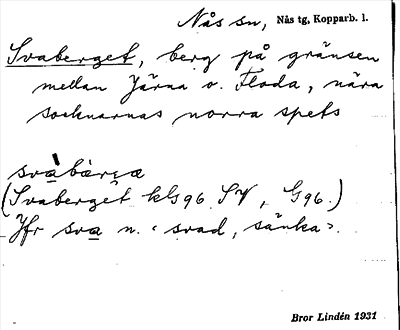 Nås sn, Nås tg, Kopparb. l.
Svaberget, berg på gränsen
mellan Järna o. Floda, nära
socknarnas norra spets
svàbàrgæ
(Svaberget kls96 SV, G96.)
Jfr sva n. "svad, sänka".
Bror Lindén 1931